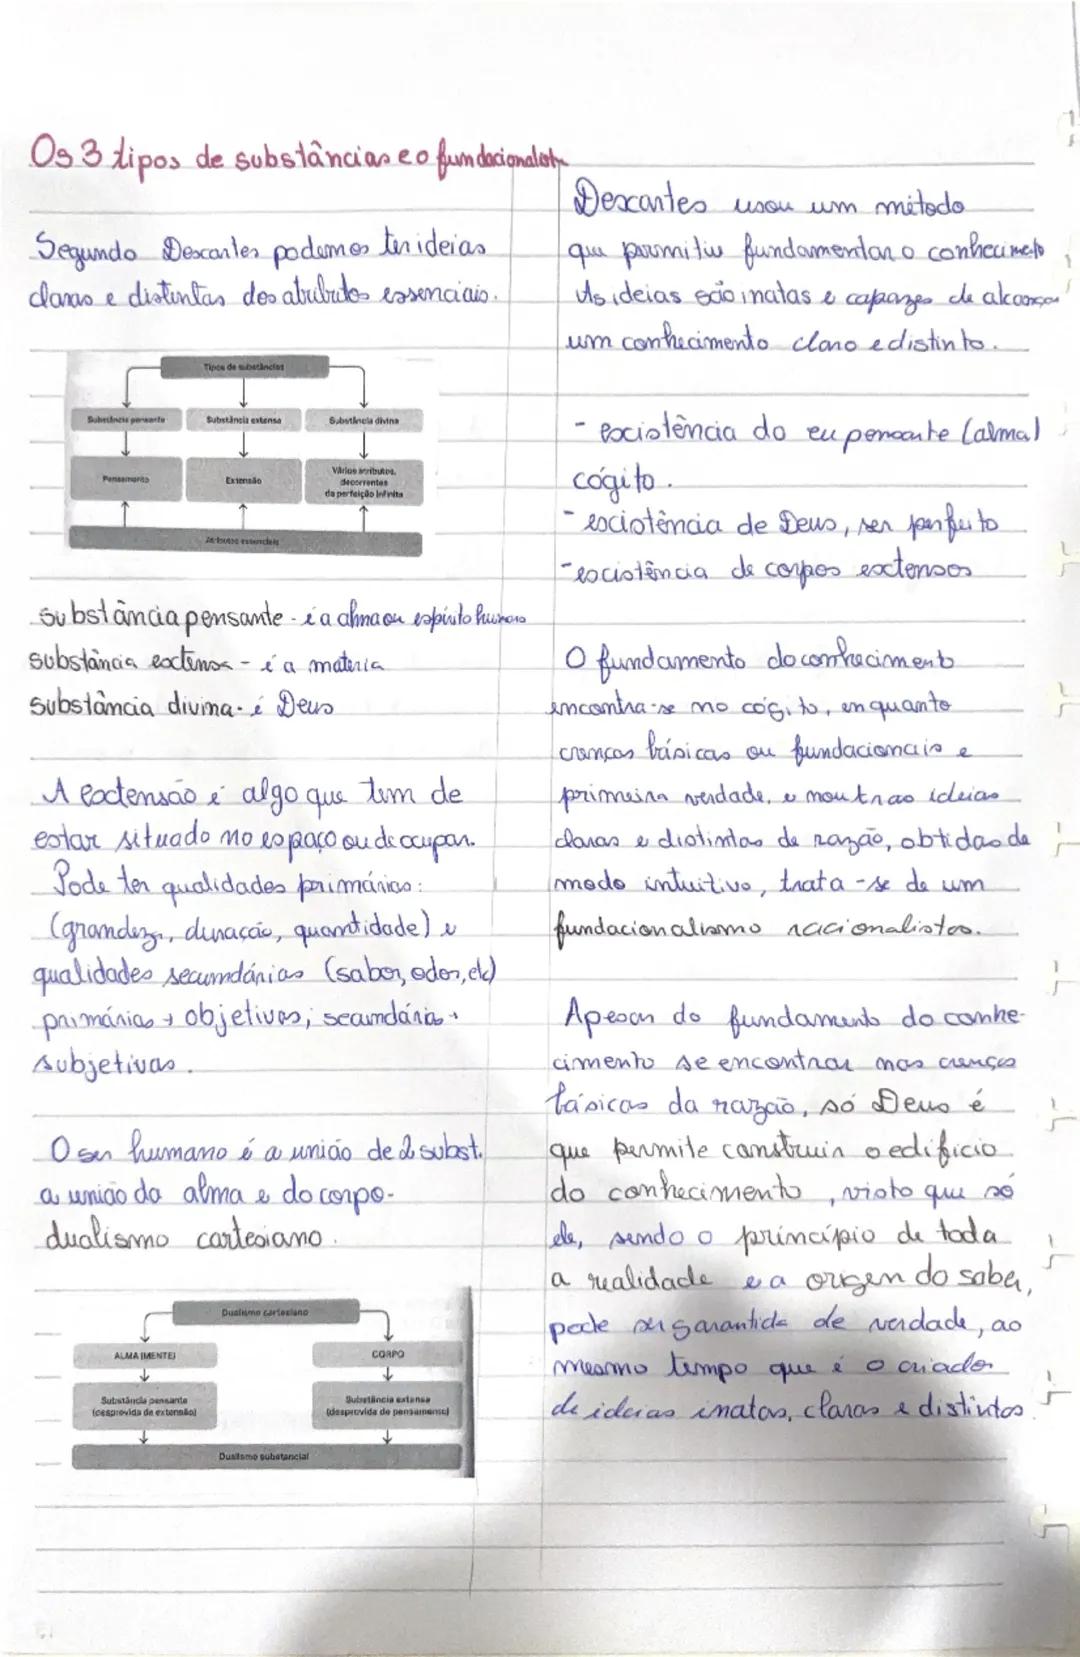 Os 3 tipos de substâncias e o fundacionalist
Segundo Descartes podemos ter ideias
claras e distintas dos atributos essenciais.
Tipos de substâncias
Substância pensante
Substância extensa
Substância divina
Pensamento
Extensão
Vários atributos,
decorrentes
da perfeição infinita
Atributos essenciais
substância pensante - é a alma ou espírito humano
substância extensa - é a materia
substância divina - é Deus
A extensão é algo que tem de
estar situado no espaço ou de ocupar.
Pode ter qualidades primárias:
(grandeza, duração, quantidade) e
qualidades secundárias (sabor, odor, etc)
primárias → objetivas; secundárias →
subjetivas.
O ser humano é a união de 2 subst.
a união da alma e do corpo -
dualismo cartesiano.
Dualismo cartesiano
ALMA (MENTE)
CORPO
Substância pensante
(desprovida de extensão)
Substância extensa
(desprovida de pensamento)
Dualismo substancial
Descartes usou um método
que permitiu fundamentar o conhecimeto
As ideias são inatas e capazes de alcançar
um conhecimento claro e distinto.
- existência do eu pensante (alma)
cógito.
- existência de Deus, ser perfeito
- existência de corpos extensos
O fundamento do conhecimento
encontra-se no cógito, enquanto
crenças básicas ou fundacionais e
primeira verdade, e noutras ideias
claras e distintas de razão, obtidas de
modo intuitivo, trata-se de um
fundacionalismo racionalistas.
Apesar do fundamento do conhe-
cimento se encontrar nas crenças
básicas da razão, só Deus é
que permite construir o edifício
do conhecimento, visto que só
ele, sendo o princípio de toda
a realidade e a origem do saber,
pode ser garantida de verdade, ao
mesmo tempo que é o criador
de ideias inatas, claras e distintas.